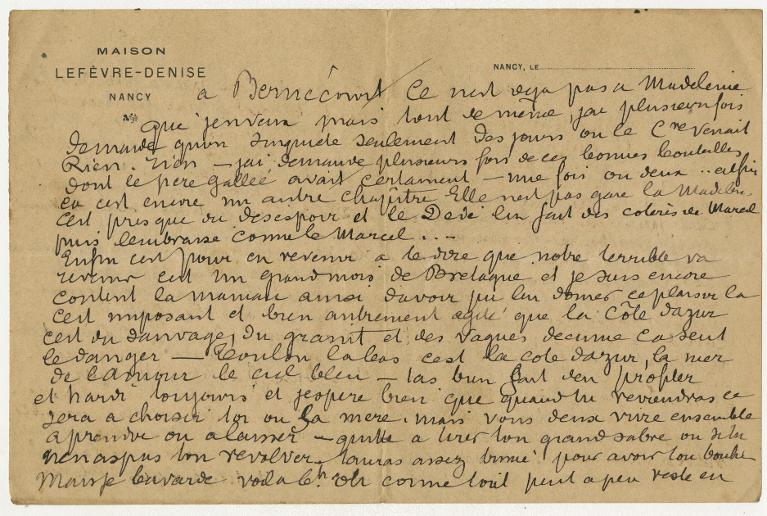 MAISON
LEFÈVRE-DENISE
NANCY
NANCY, LE
a Bernécourt Ce nest deja pas a Madeleine
que j'en veux mais tout de même, jai plusieurs fois
demandé quon s'inquiete seulement des jours ou le C revenait
Rien. rien — jai demandé plusieurs fois de ces bonnes bouteilles
dont le père Gallée avait certainement — une fois ou deux .. enfin
ca cest encore un autre chapitre Elle nest pas gaie la Madeleine
Cest presque du desespoir et le Dédé lui fait des colères de Marcel
puis lembrasse comme le Marcel ....
Enfin cest pour en revenir a te dire que notre terrible va
revenir cest un grand mois de Bretagne et je suis encore
content la maman aussi davoir pu lui donner ce plaisir la
Cest imposant et bien autrement agité que la Côte dazur
cest du sauvage, du granit et des vagues decume ca sent
le danger — Toulon labas cest la cote dazur, la mer
de lamour le ciel bleu — tas bien fait den profiter
et hardi toujours et jespère bien que quand tu reviendras ce
sera a choisir toi ou la mere. mais vous deux vivre ensemble
a prendre ou a laisser — quitte a tirer ton grand sabre ou si tu
nen as pas ton revolver, tauras assez trimé pour avoir ton bouchon
Mais je bavarde voila le oh comme tout peut a peu reste en